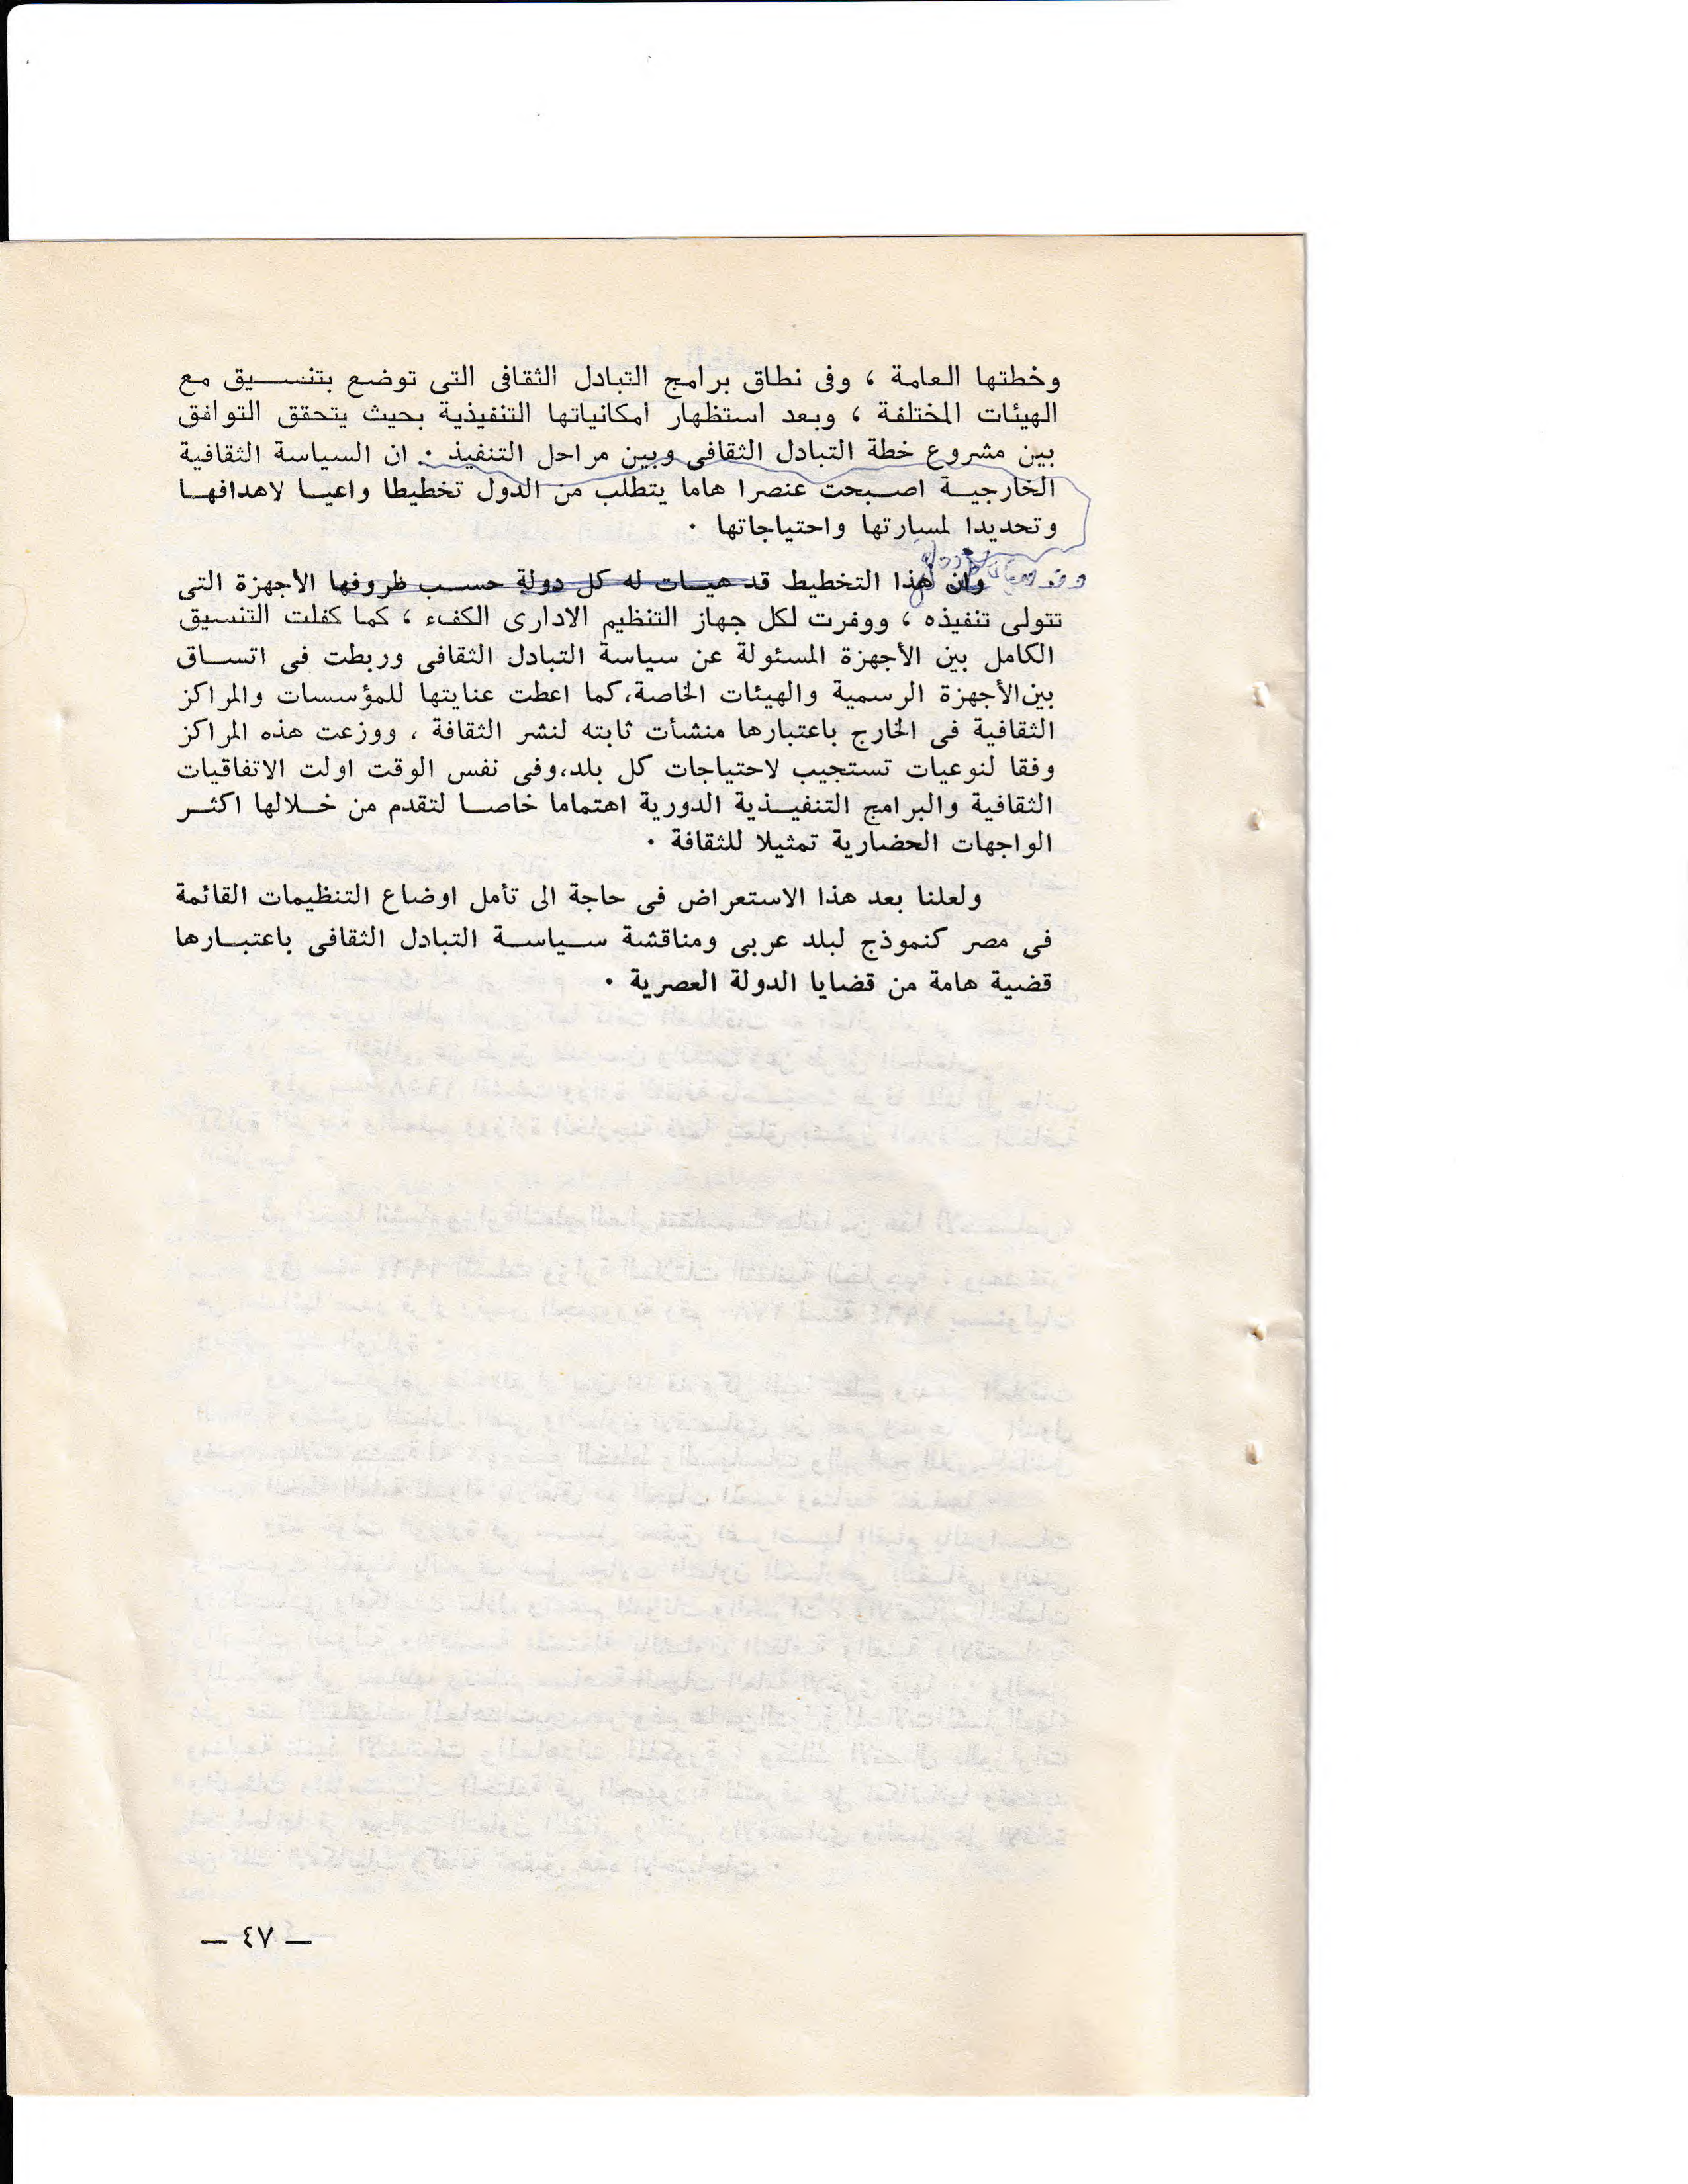 وخطتها العامة ، وفى نطاق برامج التبادل الثقافى التى توضع بتنسيق مع
الهيئات المختلفة ، وبعد استظهار امكانياتها التنفيذية بحيث يتحقق التوافق
بين مشروع خطة التبادل الثقافى وبين مراحل التنفيذ . ان السياسة الثقافية
الخارجية اصبحت عنصرا هاما يتطلب من الدول تخطيطا واعيا لاهدافها
وتحديدا لمسارتها واحتياجاتها .
وان هذا التخطيط قد هيات له كل دولة حسب ظروفها الأجهزة التى
تتولى تنفيذه ، ووفرت لكل جهاز التنظيم الادارى الكفء ، كما كفلت التنسيق
الكامل بين الأجهزة المسئولة عن سياسة التبادل الثقافى وربطت فى اتساق
بين الأجهزة الرسمية والهيئات الخاصة، كما اعطت عنايتها للمؤسسات والمراكز
الثقافية فى الخارج باعتبارها منشأت ثابته لنشر الثقافة ، ووزعت هذه المراكز
وفقا لنوعيات تستجيب لاحتياجات كل بلد، وفى نفس الوقت اولت الاتفاقيات
الثقافية والبرامج التنفيذية الدورية اهتماما خاصا لتقدم من خلالها اكثر
الواجهات الحضارية تمثيلا للثقافة .
ولعلنا بعد هذا الاستعراض فى حاجة الى تأمل اوضاع التنظيمات القائمة
فى مصر كنموذج لبلد عربى ومناقشة سياسة التبادل الثقافى باعتبارها
قضية هامة من قضايا الدولة العصرية .
— ٤٧ —